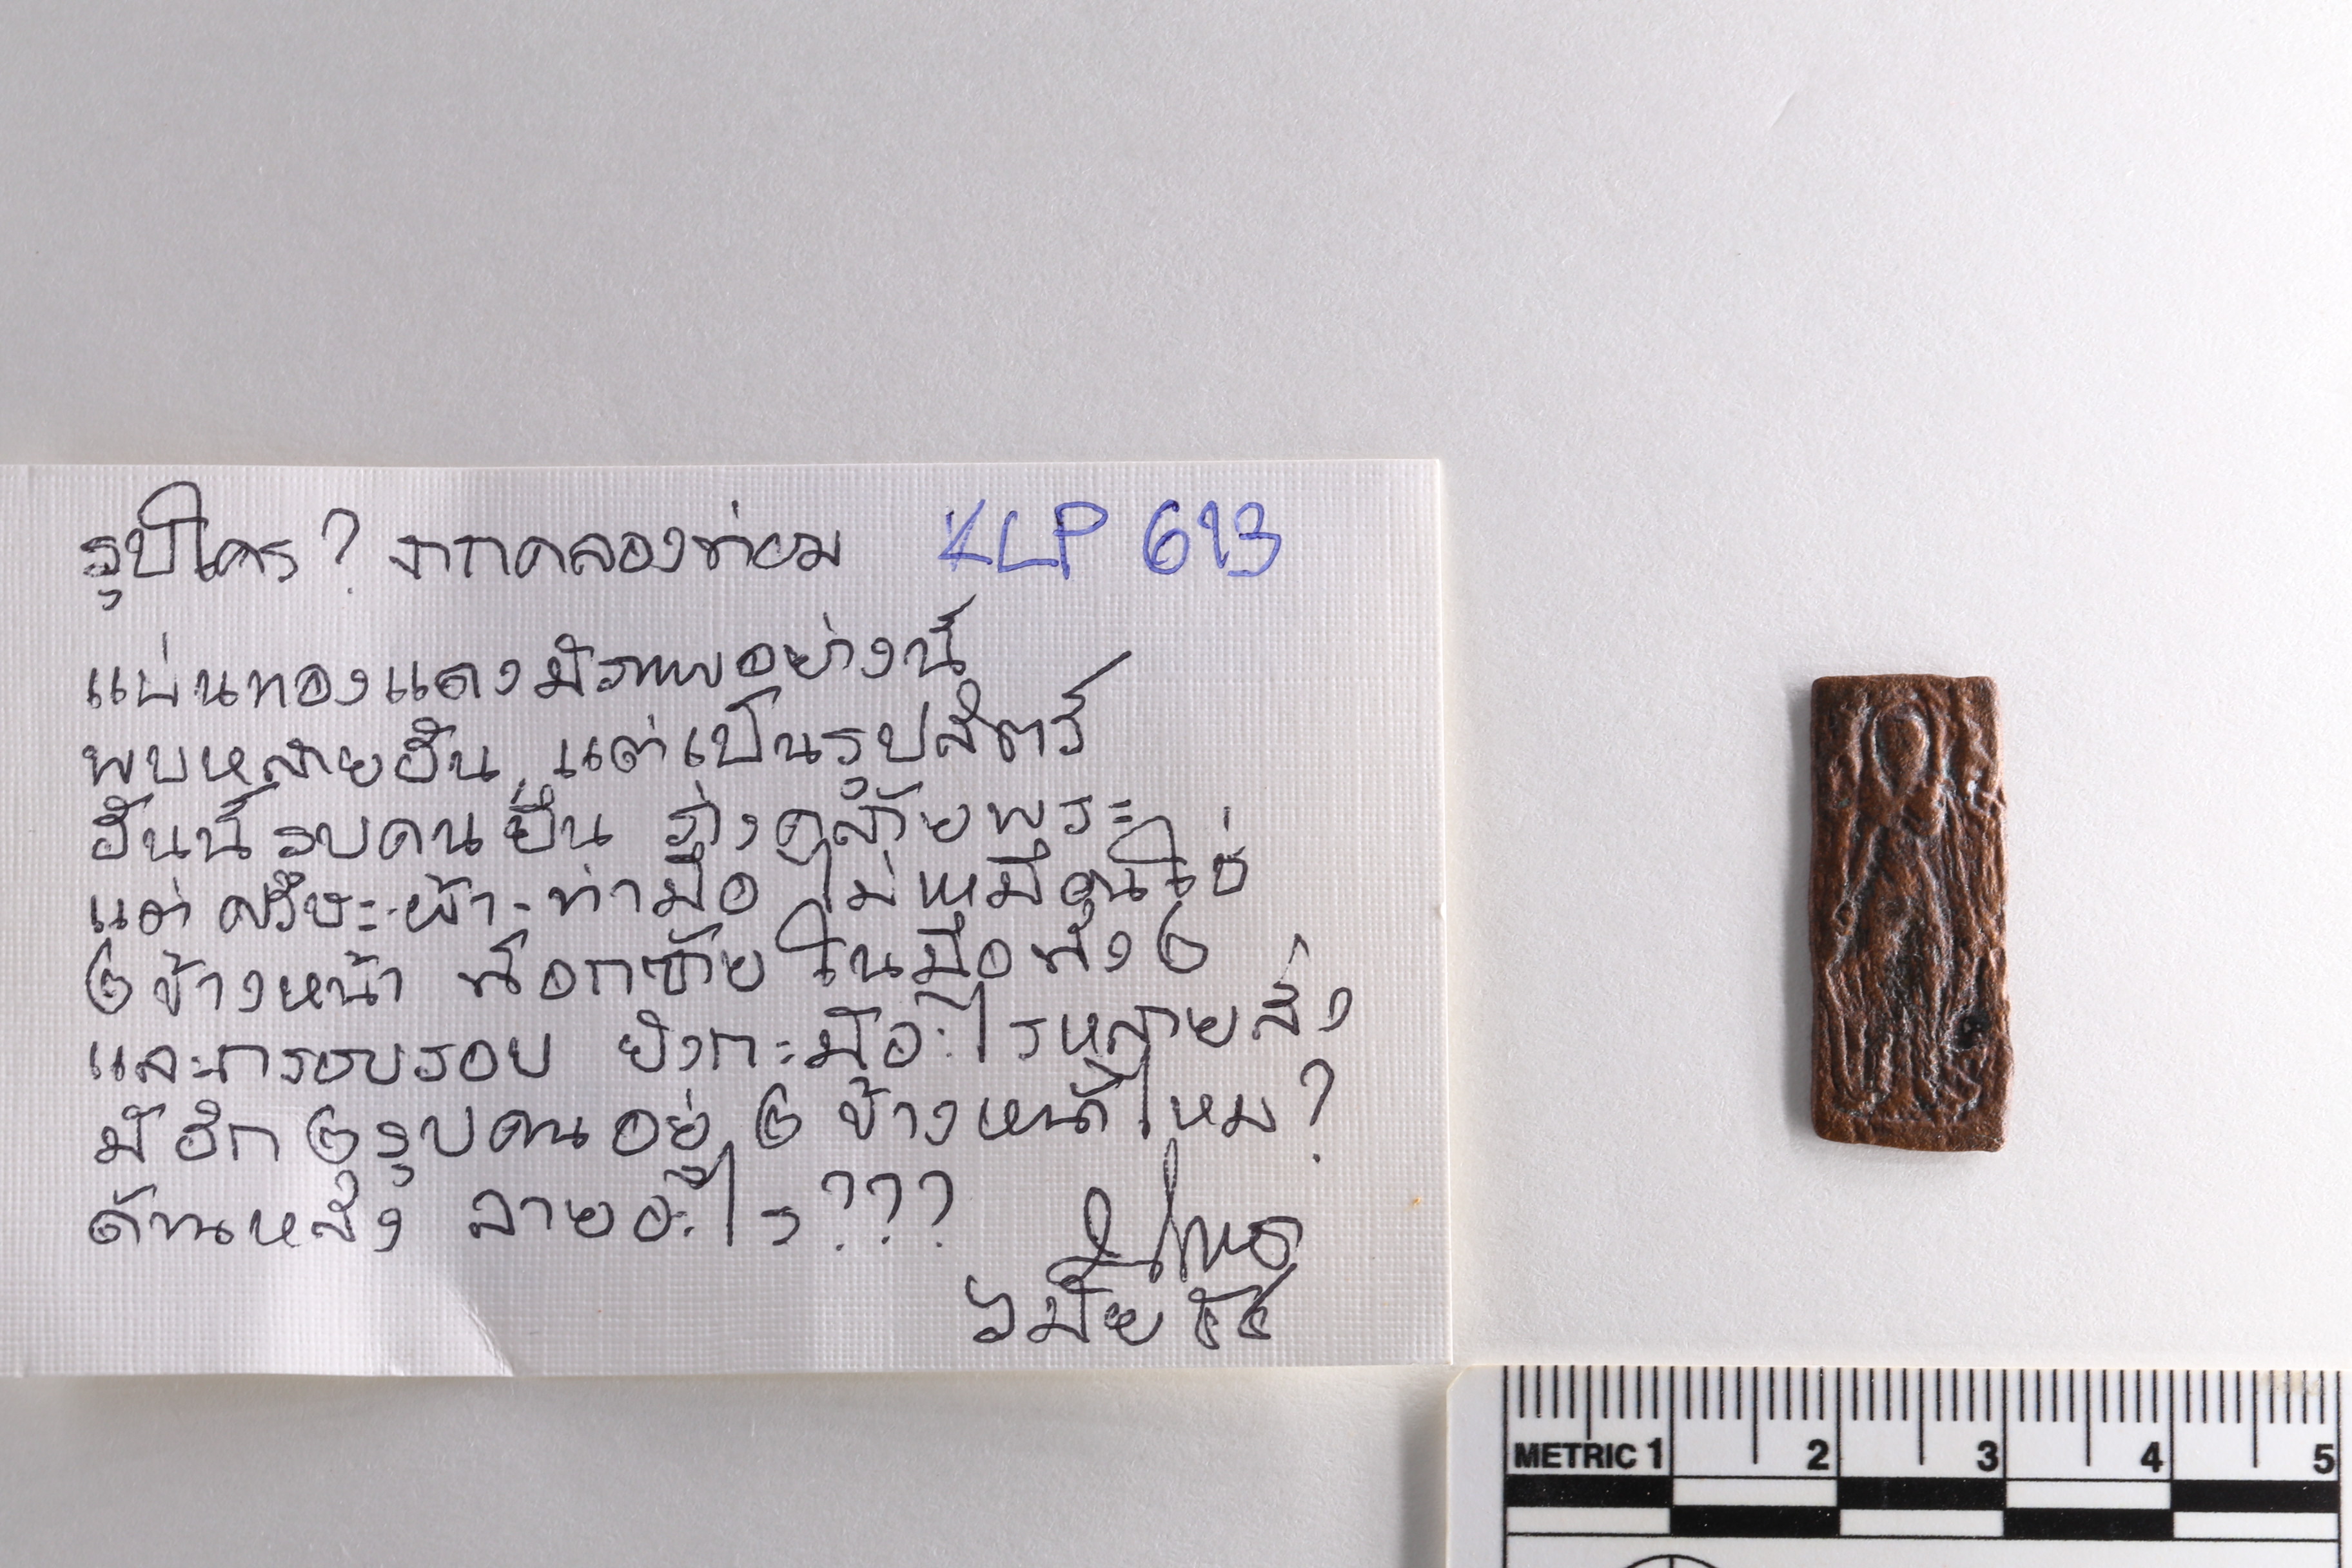 รูปใคร? จากคลองท่อม KLP 693
แผ่นทองแดงมีภาพอย่างนี้
พบหลายชิ้น แต่เป็นรูปสัตว์
ชิ้นนี้รูปคนยืน ร่างคล้ายพระ
แต่ศรีษะ-ผ้า-ท่ามือ ไม่เหมือนใช่
๒ ข้างหน้า ที่อกซ้าย ในมือทั้ง ๒
และกรอบรอบ ยังกะมีอะไรหลายสิ่ง
มีอีก ๒ รูปคนอยู่ ๒ ข้างหน้าไหม?
ด้านหลัง ลายอะไร???
๖ มีย ๕๕
METRIC 1 2 3 4 5